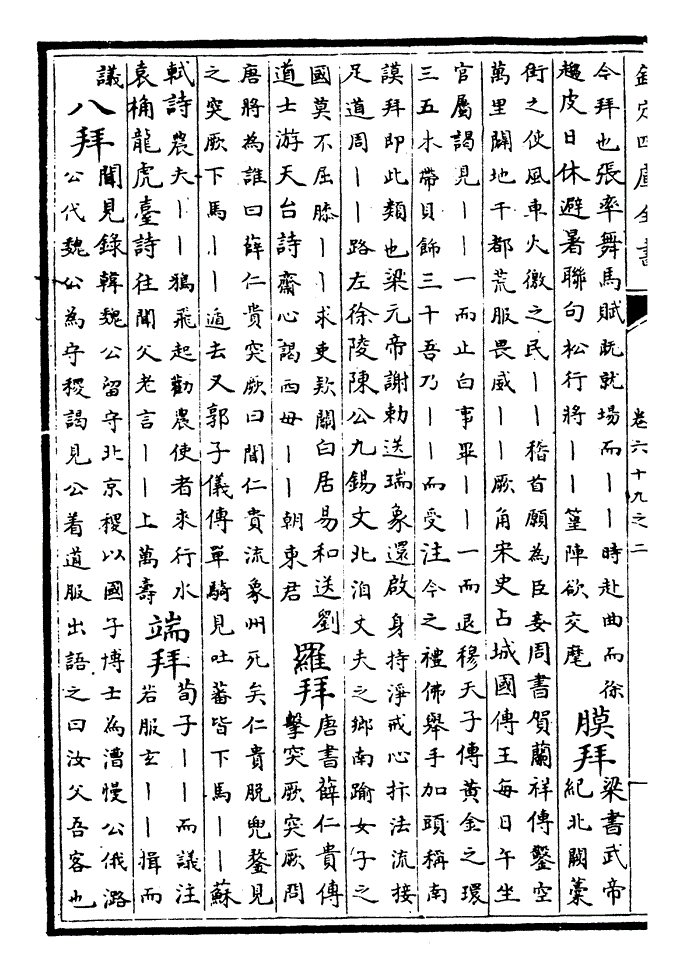 欽定四庫全書
卷六十九之二
今拜也張率舞馬賦既就場而丨丨時赴曲而徐
趨皮日休避暑聯句松行將丨丨篁陣欲交麾
膜拜
梁書武帝
紀北闕藁
街之使風車火徼之民丨丨稽首願為臣妾周書賀蘭祥傳鑿空
萬里闢地千都荒服畏威丨丨厥角宋史占城國傳王每日午坐
官屬謁見丨丨一而止白事畢丨丨一而退穆天子傳黃金之環
三五木帶貝飾三十吾乃丨丨丨而受注今之禮佛舉手加頭稱南
謨拜即此類也梁元帝謝勅送瑞象還啟身持淨戒心抃法流接
足道周丨丨路左徐陵陳公九錫文北洎丈夫之鄉南踰女子之
國莫不屈膝丨丨求吏欵關白居易和送劉
道士游天台詩齋心謁西母丨丨朝東君
羅拜
唐書薛仁貴傳
擊突厥突厥問
唐將為誰曰薛仁貴突厥曰聞仁貴流象州死矣仁貴脫兜鍪見
之突厥下馬丨丨遁去又郭子儀傳單騎見吐蕃皆下馬丨丨蘇
軾詩農夫丨丨鴉飛起勸農使者來行水
袁桷龍虎臺詩往聞父老言丨丨上萬壽
端拜
荀子丨丨而議注
若服玄丨丨揖而
議
八拜
聞見錄韓魏公留守北京稷以國子博士為漕慢公俄潞
公代魏公為守稷謁見公着道服出語之曰汝父吾客也